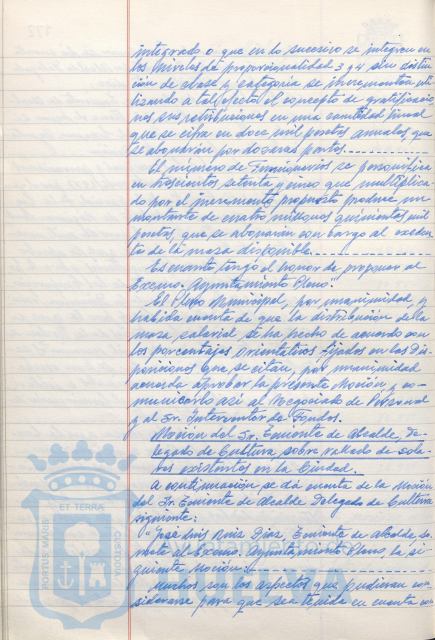 integrado o que en lo sucesivo se integren en
los niveles de proporcionalidad 3 y 4 sin distin-
ción de clase y categoría se incrementan uti-
lizando a tal efecto el concepto de gratificacio-
nes sus retribuciones en una cantidad lineal
que se cifra en doce mil pesetas anuales que
se abonarán por dozavas partes.
El número de Funcionarios se
en trescientos setenta y cinco que multiplica-
do por el incremento propuesto produce un
montante de cuatro millones quinientas mil
pesetas, que se abonarán con cargo al exceden-
te de la masa disponible.
Es cuanto tengo el honor de proponer al
Excmo. Ayuntamiento Pleno."
El Pleno Municipal, por unanimidad, y
habida cuenta de que la distribución de la
masa salarial se ha hecho de acuerdo con
los porcentajes orientativos fijados en las Dis-
posiciones que se citan, por unanimidad
acuerda aprobar la presente Moción y co-
municarlo así al Negociado de Personal
y al Sr. Interventor de Fondos.
Moción del Sr. Teniente de Alcalde, De-
legado de Cultura sobre vallado de sola-
res existentes en la Ciudad.
A continuación se da cuenta de la Moción
del Sr. Teniente de Alcalde Delegado de Cultura
siguiente:
"José Luis Ruiz Díaz, Teniente de Alcalde, so-
mete al Excmo. Ayuntamiento Pleno, la si-
guiente Moción:
Muchos son los aspectos que pudieran con-
siderarse para que sea tenida en cuenta con
PORTUS MARIS ET TERRAE CUSTODIA